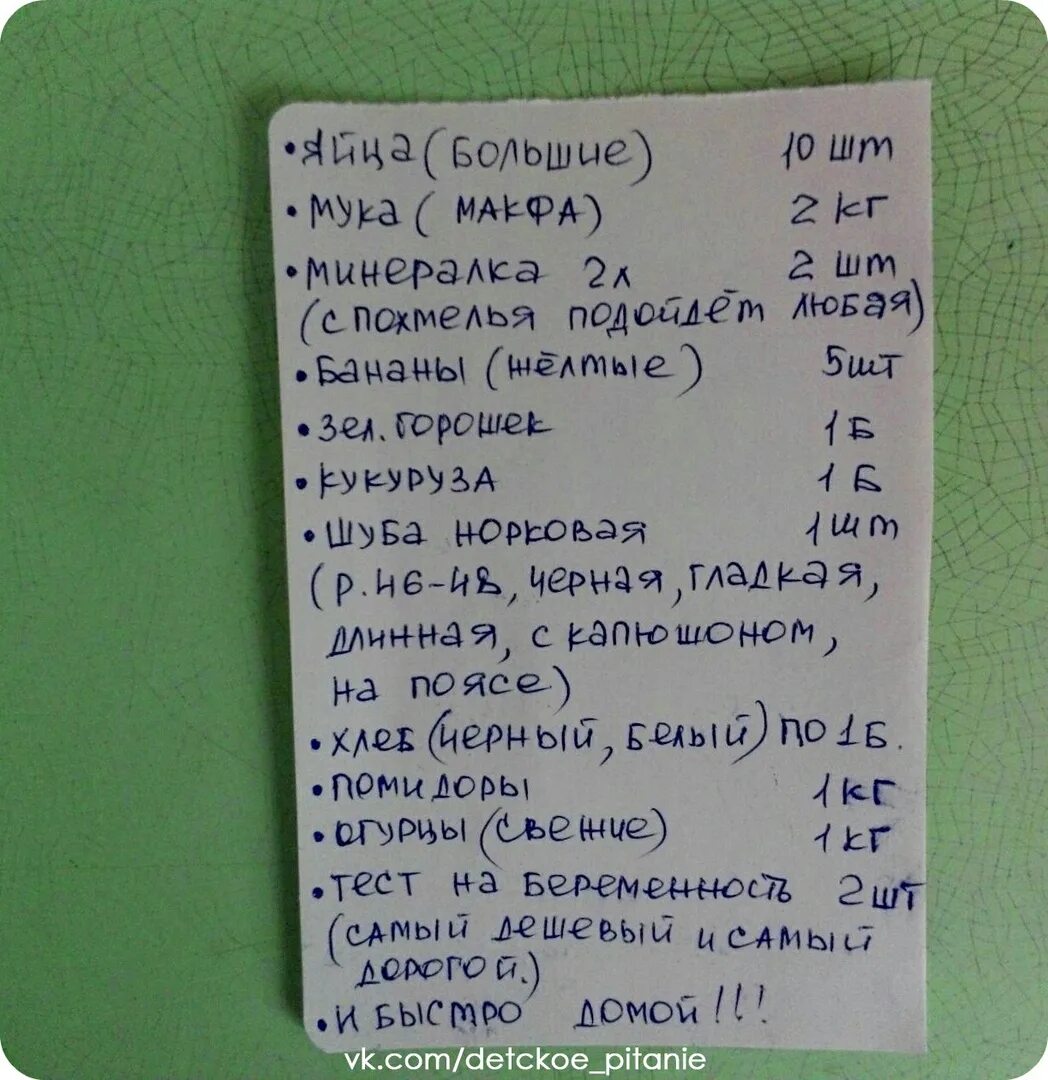 • Яйца (большие) 10 шт
• Мука (МАКФА) 2 кг
• Минералка 2л 2 шт
(с похмелья подойдёт любая)
• Бананы (жёлтые) 5шт
• Зел. горошек 1 Б
• Кукуруза 1 Б
• Шуба норковая 1 шт
(р. 46-48, черная, гладкая,
длинная, с капюшоном,
на поясе)
• Хлеб (черный, белый) по 1Б.
• Помидоры 1 кг
• Огурцы (свежие) 1 кг
• Тест на беременность 2 шт
(самый дешевый и самый
дорогой.)
• И быстро домой!!!
vk.com/detckoe_pitanie